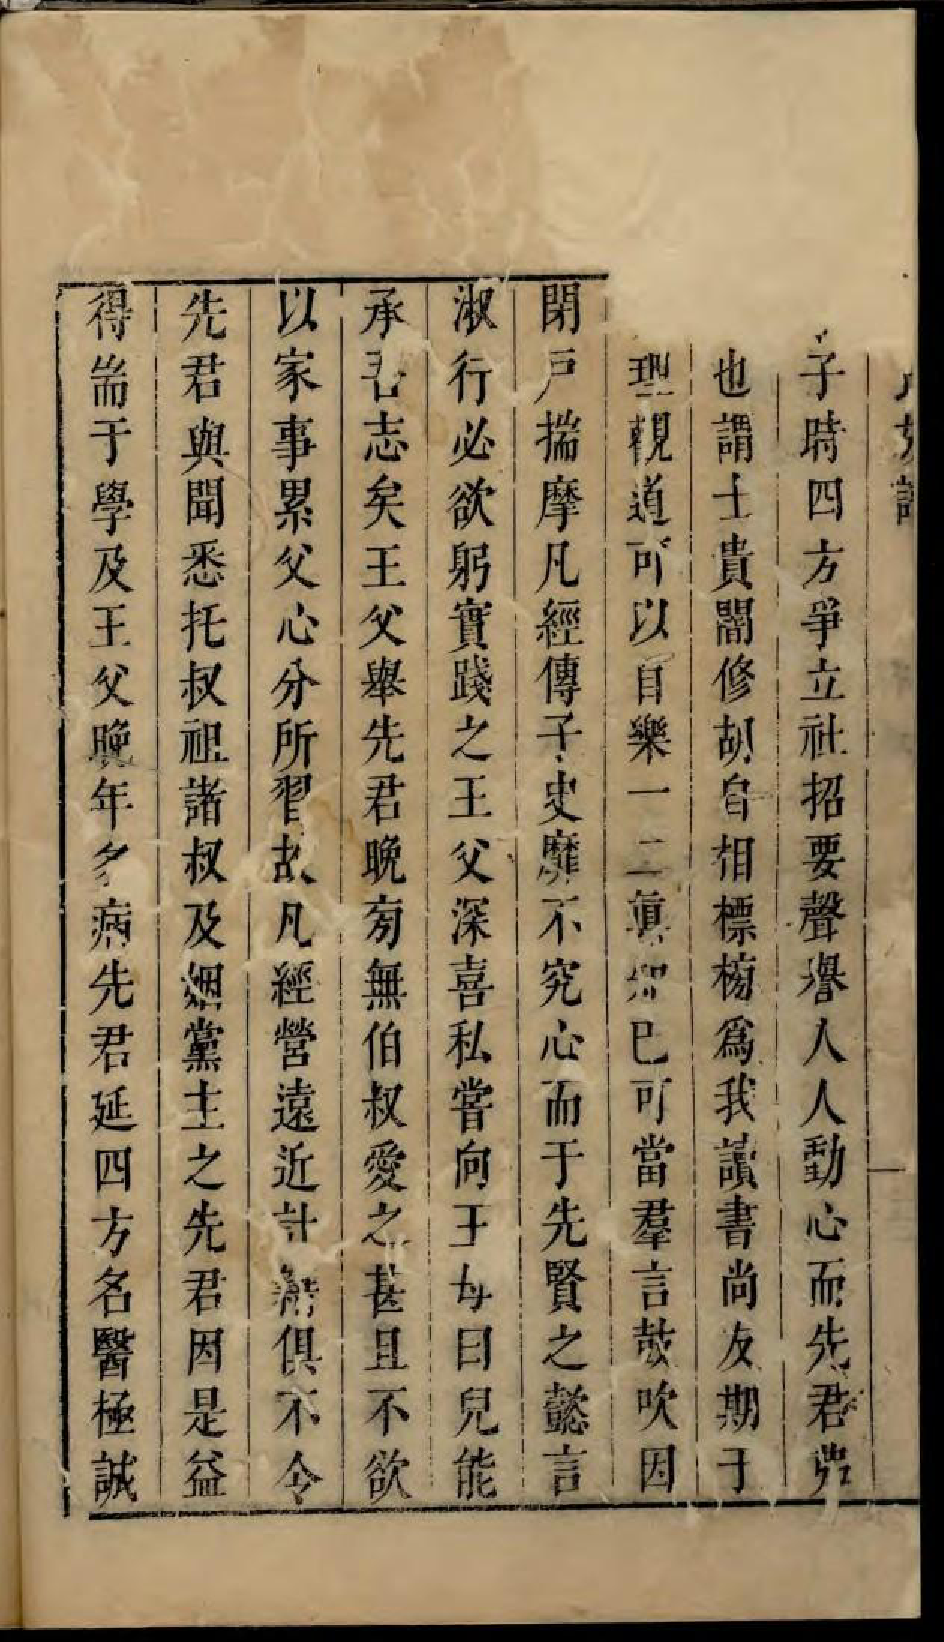 子時四方爭立社招要聲譽人人動心而先君
也謂士貴闇修胡自相標榜爲我讀書尚友期于
聖觀道可以自樂一二眞知已可當羣言鼓吹因
閉戸揣摩凡經傳子史靡不究心而于先賢之懿言
淑行必欲躬實踐之王父深喜私嘗向王母曰兒能
承吾志矣王父舉先君晚旁無伯叔愛之甚且不欲
以家事累父心分所習故凡經營遠近計俱不令
先君與聞悉托叔祖諸叔及姻黨主之先君因是益
得耑于學及王父晚年多病先君延四方名醫極誠